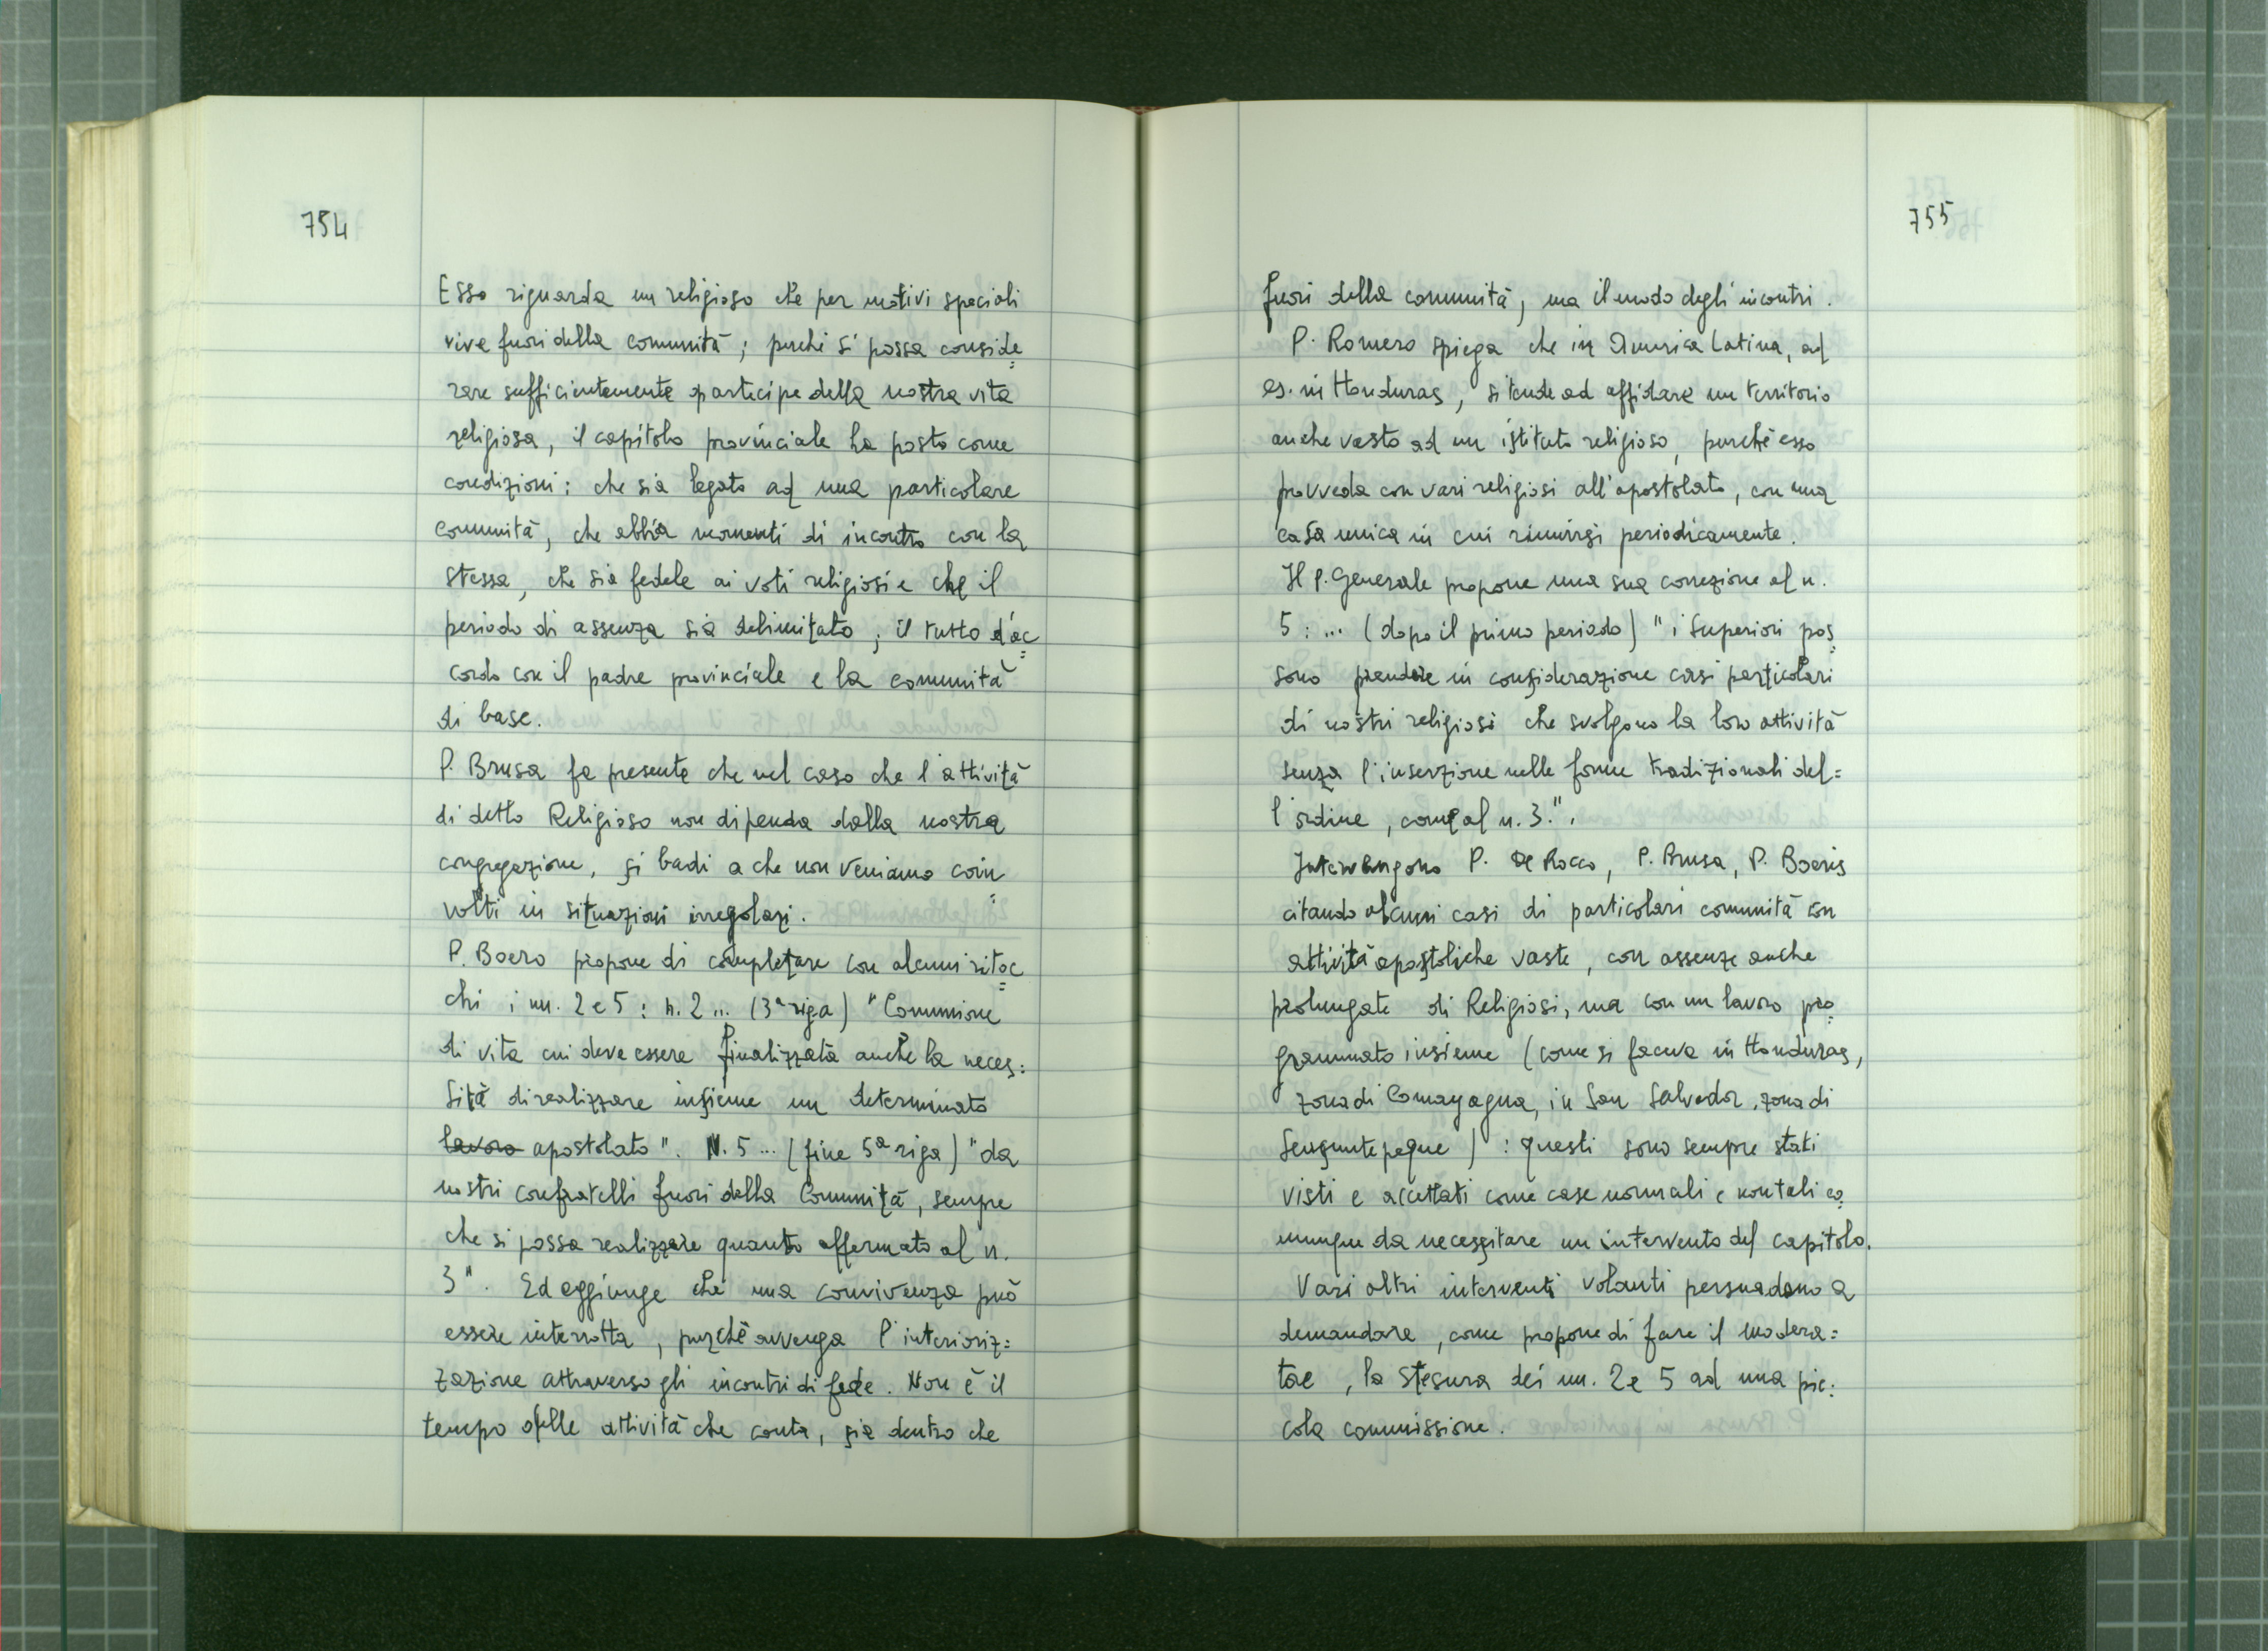 754
Esso riguarda un religioso che per motivi speciali
vive fuori della comunità; perché si possa conside=
rare sufficientemente partecipe della nostra vita
religiosa, il capitolo provinciale ha posto come
condizioni: che sia legato ad una particolare
comunità, che abbia momenti di incontro con la
stessa, che sia fedele ai voti religiosi e che il
periodo di assenza sia delimitato; il tutto d'ac=
cordo con il padre provinciale e la comunità
di base.
P. Brusa fa presente che nel caso che l'attività
di detto Religioso non dipenda dalla nostra
congregazione, si badi a che non veniamo coin=
volti in situazioni irregolari.
P. Boero propone di completare con alcuni ritoc=
chi i nn. 2 e 5: n. 2 ... (3ª riga) "Comunione
di vita cui deve essere finalizzata anche la neces=
sità di realizzare insieme un determinato
lavoro apostolato". N. 5 ... (fine 5ª riga) "da
nostri confratelli fuori della Comunità, sempre
che si possa realizzare quanto affermato al n.
3". Ed aggiunge che una convivenza può
essere interrotta, purchè avvenga l'interioriz=
zazione attraverso gli incontri di fede. Non è il
tempo delle attività che conta, sia dentro che
755
fuori della comunità, ma il modo degli incontri.
P. Romero spiega che in America Latina, ad
es. in Honduras, si tende ad affidare un territorio
anche vasto ad un istituto religioso, purchè esso
provveda con vari religiosi all'apostolato, con una
casa unica in cui riunirsi periodicamente.
Il P. Generale propone una sua correzione al n.
5: ... (dopo il primo periodo) "i Superiori pos=
sono prendere in considerazione casi particolari
di nostri religiosi che svolgono la loro attività
senza l'inserzione nelle forme tradizionali del=
l'ordine, come al n. 3.".
Intervengono P. De Rocco, P. Brusa, P. Boeris
citando alcuni casi di particolari comunità con
attività apostoliche vaste, con assenze anche
prolungate di Religiosi, ma con un lavoro pro=
grammato insieme (come si faceva in Honduras,
zona di Comayagua, in San Salvador, zona di
Sensuntepeque): questi sono sempre stati
visti e accettati come case normali e non tali co=
munque da necessitare un intervento del capitolo.
Vari altri interventi volanti persuadono a
demandare, come propone di fare il modera=
tore, la stesura dei nn. 2 e 5 ad una pic=
cola commissione.